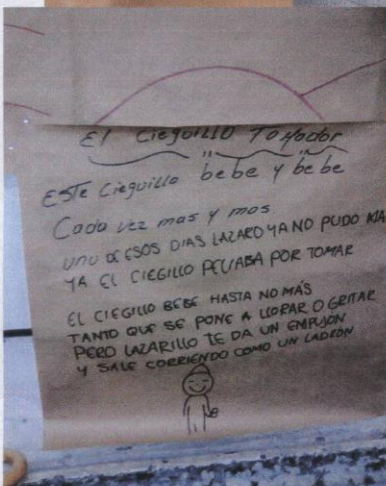 El Cieguillo Tomador
Este Cieguillo "bebe y bebe"
Cada vez mas y mas
UNO DE ESOS DIAS LAZARO YA NO PUDO MA
YA EL CIEGILLO PELIABA POR TOMAR
EL CIEGILLO BEBE HASTA NO MÁS
TANTO QUE SE PONE A LLORAR O GRITAR
PERO LAZARILLO TE DA UN EMPUJÓN
Y SALE CORRIENDO COMO UN LADRÓN